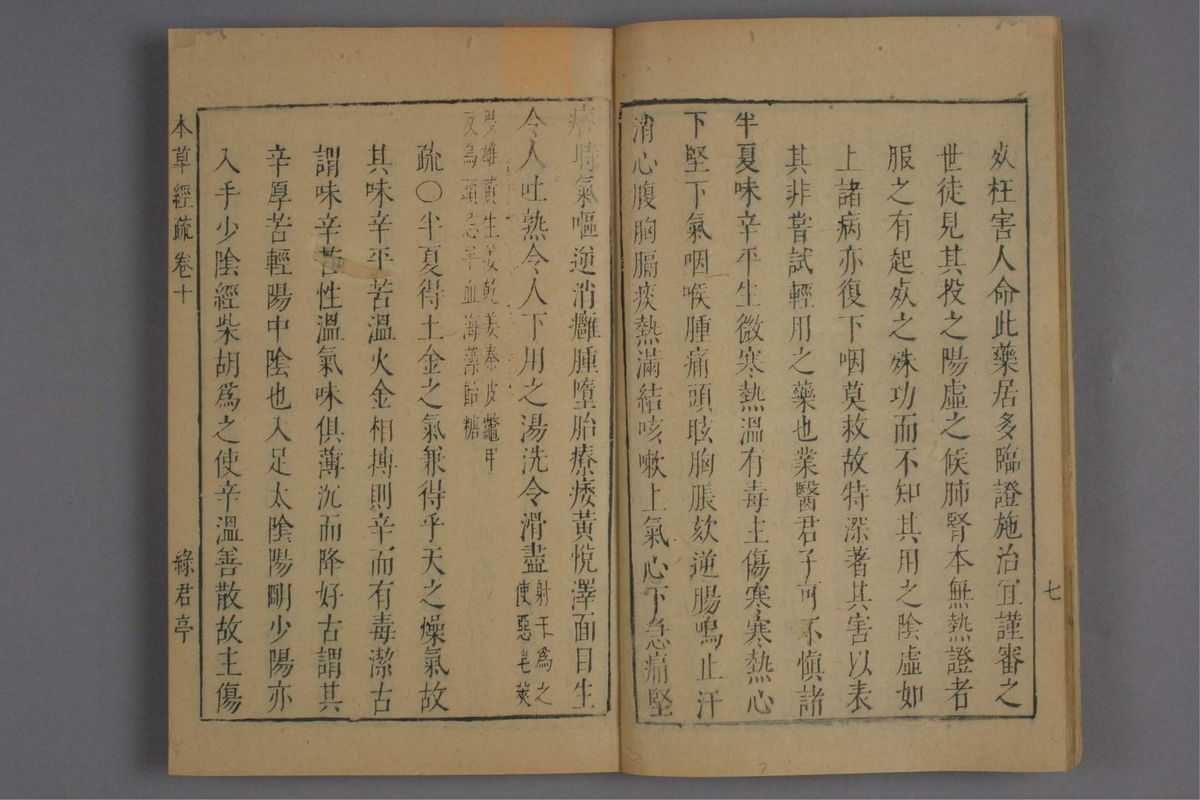 七
夊枉害人命此藥居多臨證施治宜謹審之
世徒見其投之陽虛之候肺腎本無熱證者
服之有起夊之殊功而不知其用之陰虛如
上諸病亦復下咽莫救故特深著其害以表
其非嘗試輕用之藥也業醫君子可不慎諸
半夏味辛平生微寒熱溫有毒主傷寒寒熱心
下堅下氣咽喉腫痛頭眩胸脹欬逆腸鳴止汗
消心腹胸膈痰熱滿結咳嗽上氣心下急痛堅
痞時氣嘔逆消癰腫墮胎療痿黃悅澤面目生
令人吐熟令人下用之湯洗令滑盡射干爲之使惡皂莢
畏雄黃生姜乾姜秦皮龜甲
反烏頭忌羊血海藻飴糖
疏〇半夏得土金之氣兼得乎天之燥氣故
其味辛平苦溫火金相搏則辛而有毒潔古
謂味辛苦性溫氣味俱薄沉而降好古謂其
辛厚苦輕陽中陰也入足太陰陽明少陽亦
入手少陰經柴胡爲之使辛溫善散故主傷
本草經疏卷十
綠君亭